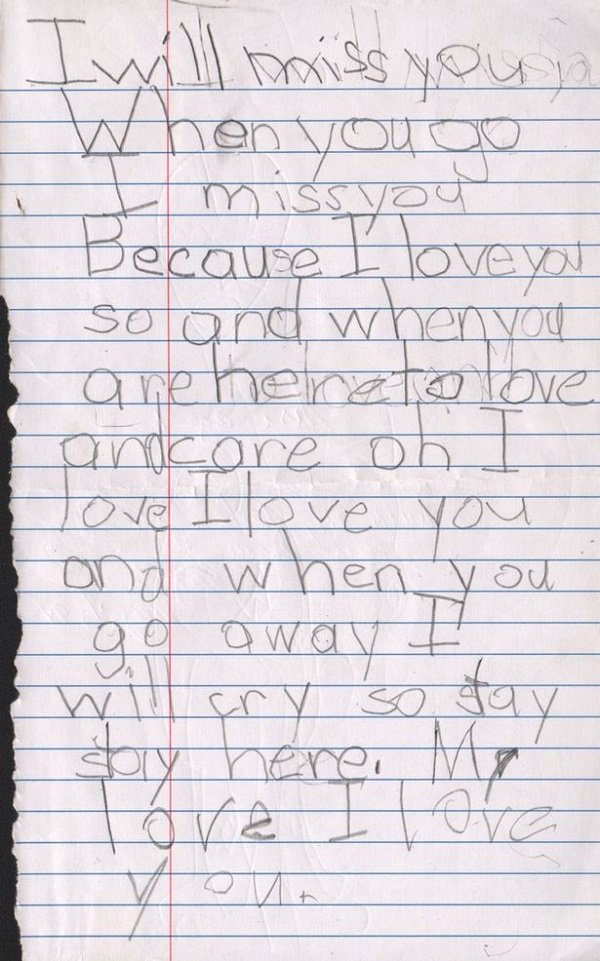 I will miss you
When you go
I miss you
Because I love you
so and when you
are here to love
and care oh I
love I love you
and when you
go away I
will cry so stay
stay here. My
love I love
you.